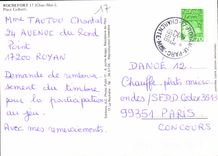 ROCHEFORT 17 (Char.-Mar.)
Place Colbert.
17
Mme TAOTOU Chantal
24 AVENUE du Rond
Point
17200 ROYAN
Demande de rembour-
sement du timbre
pour la participation
au jeu.
Avec mes remerciements.
DANOE 12
Chauffe plats micro
ondes/SEDD Cedex 3617
99351 PARIS
CONCOURS